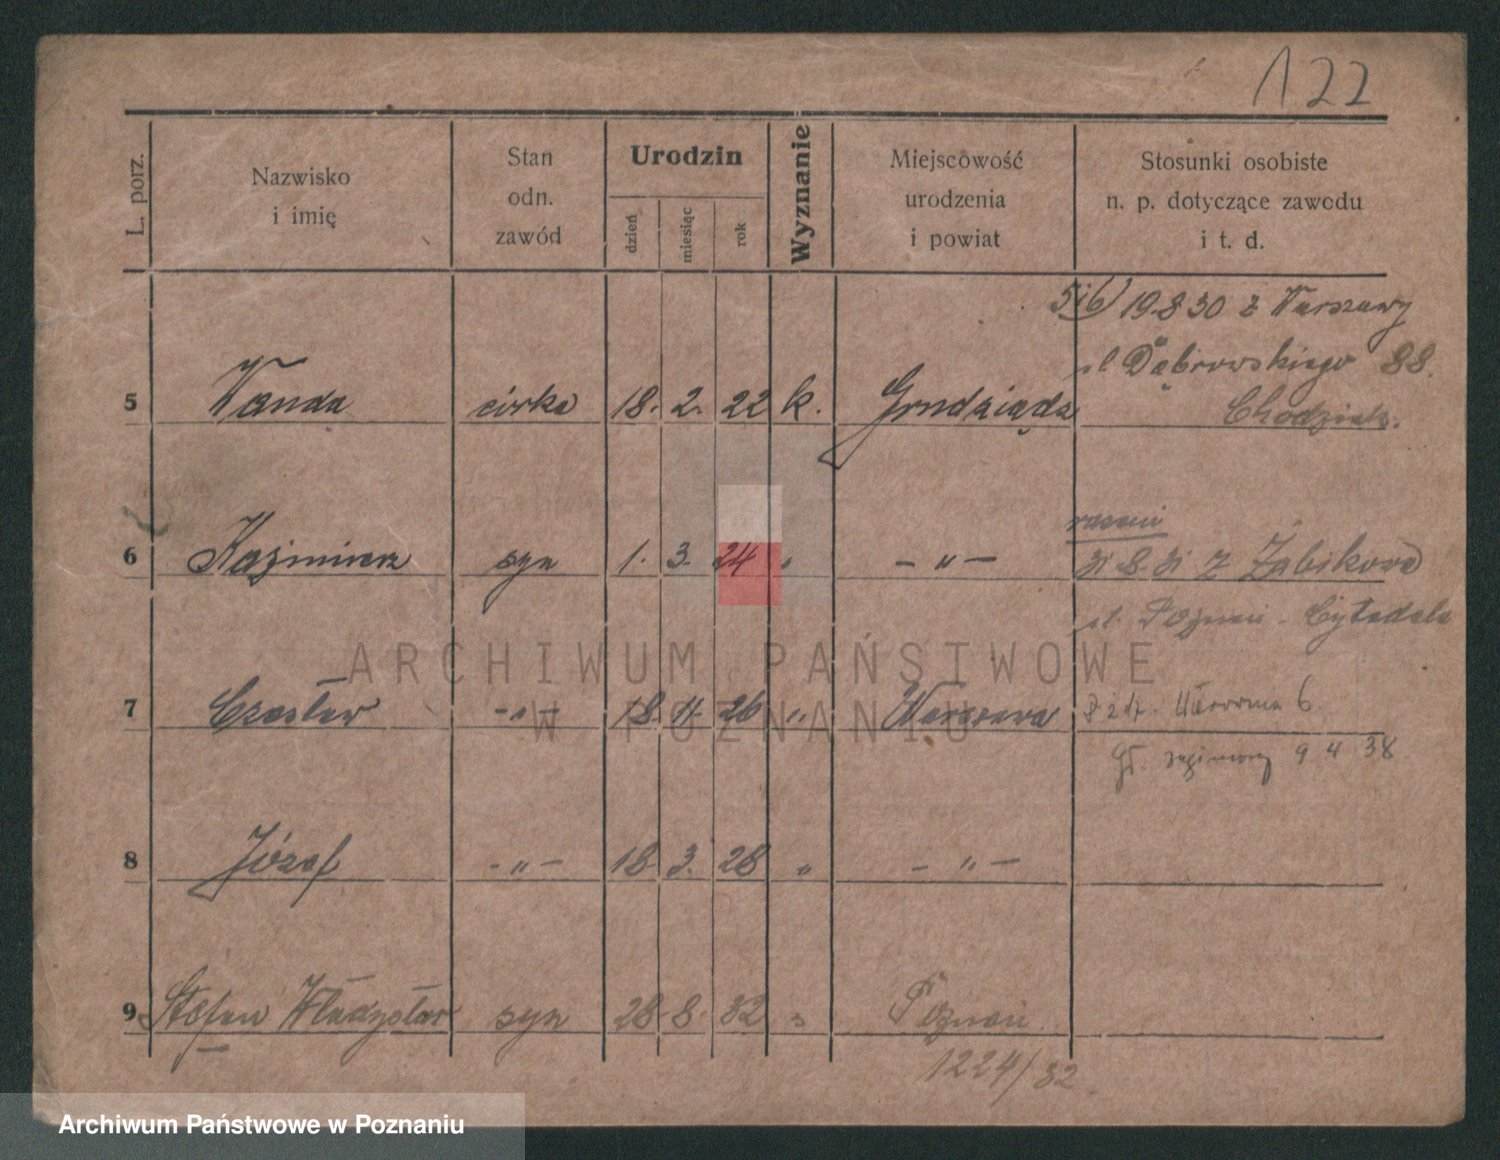 122
L. porz.
Nazwisko
i imię
Stan
odn.
zawód
Urodzin
dzień
miesiąc
rok
Wyznanie
Miejscowość
urodzenia
i powiat
Stosunki osobiste
n. p. dotyczące zawodu
i t. d.
5i6) 19.8 30 z Warszawy
ul Dąbrowskiego 88.
5 Wanda córka 18. 2. 22 k. Grudziądz
razem
6 Kazimierz syn 1. 3. 24 " - " -
z Żabikowo
Poznań - Cytadela
7 Czesław - " - 18. 11. 26 " Warszawa
6
9 4 38
8 Józef - " - 18 3. 28 " - " -
9 Stefan Władysław syn 28 8. 32 " Poznań
1224/32
ARCHIWUM PAŃSTWOWE
W POZNANIU
Archiwum Państwowe w Poznaniu